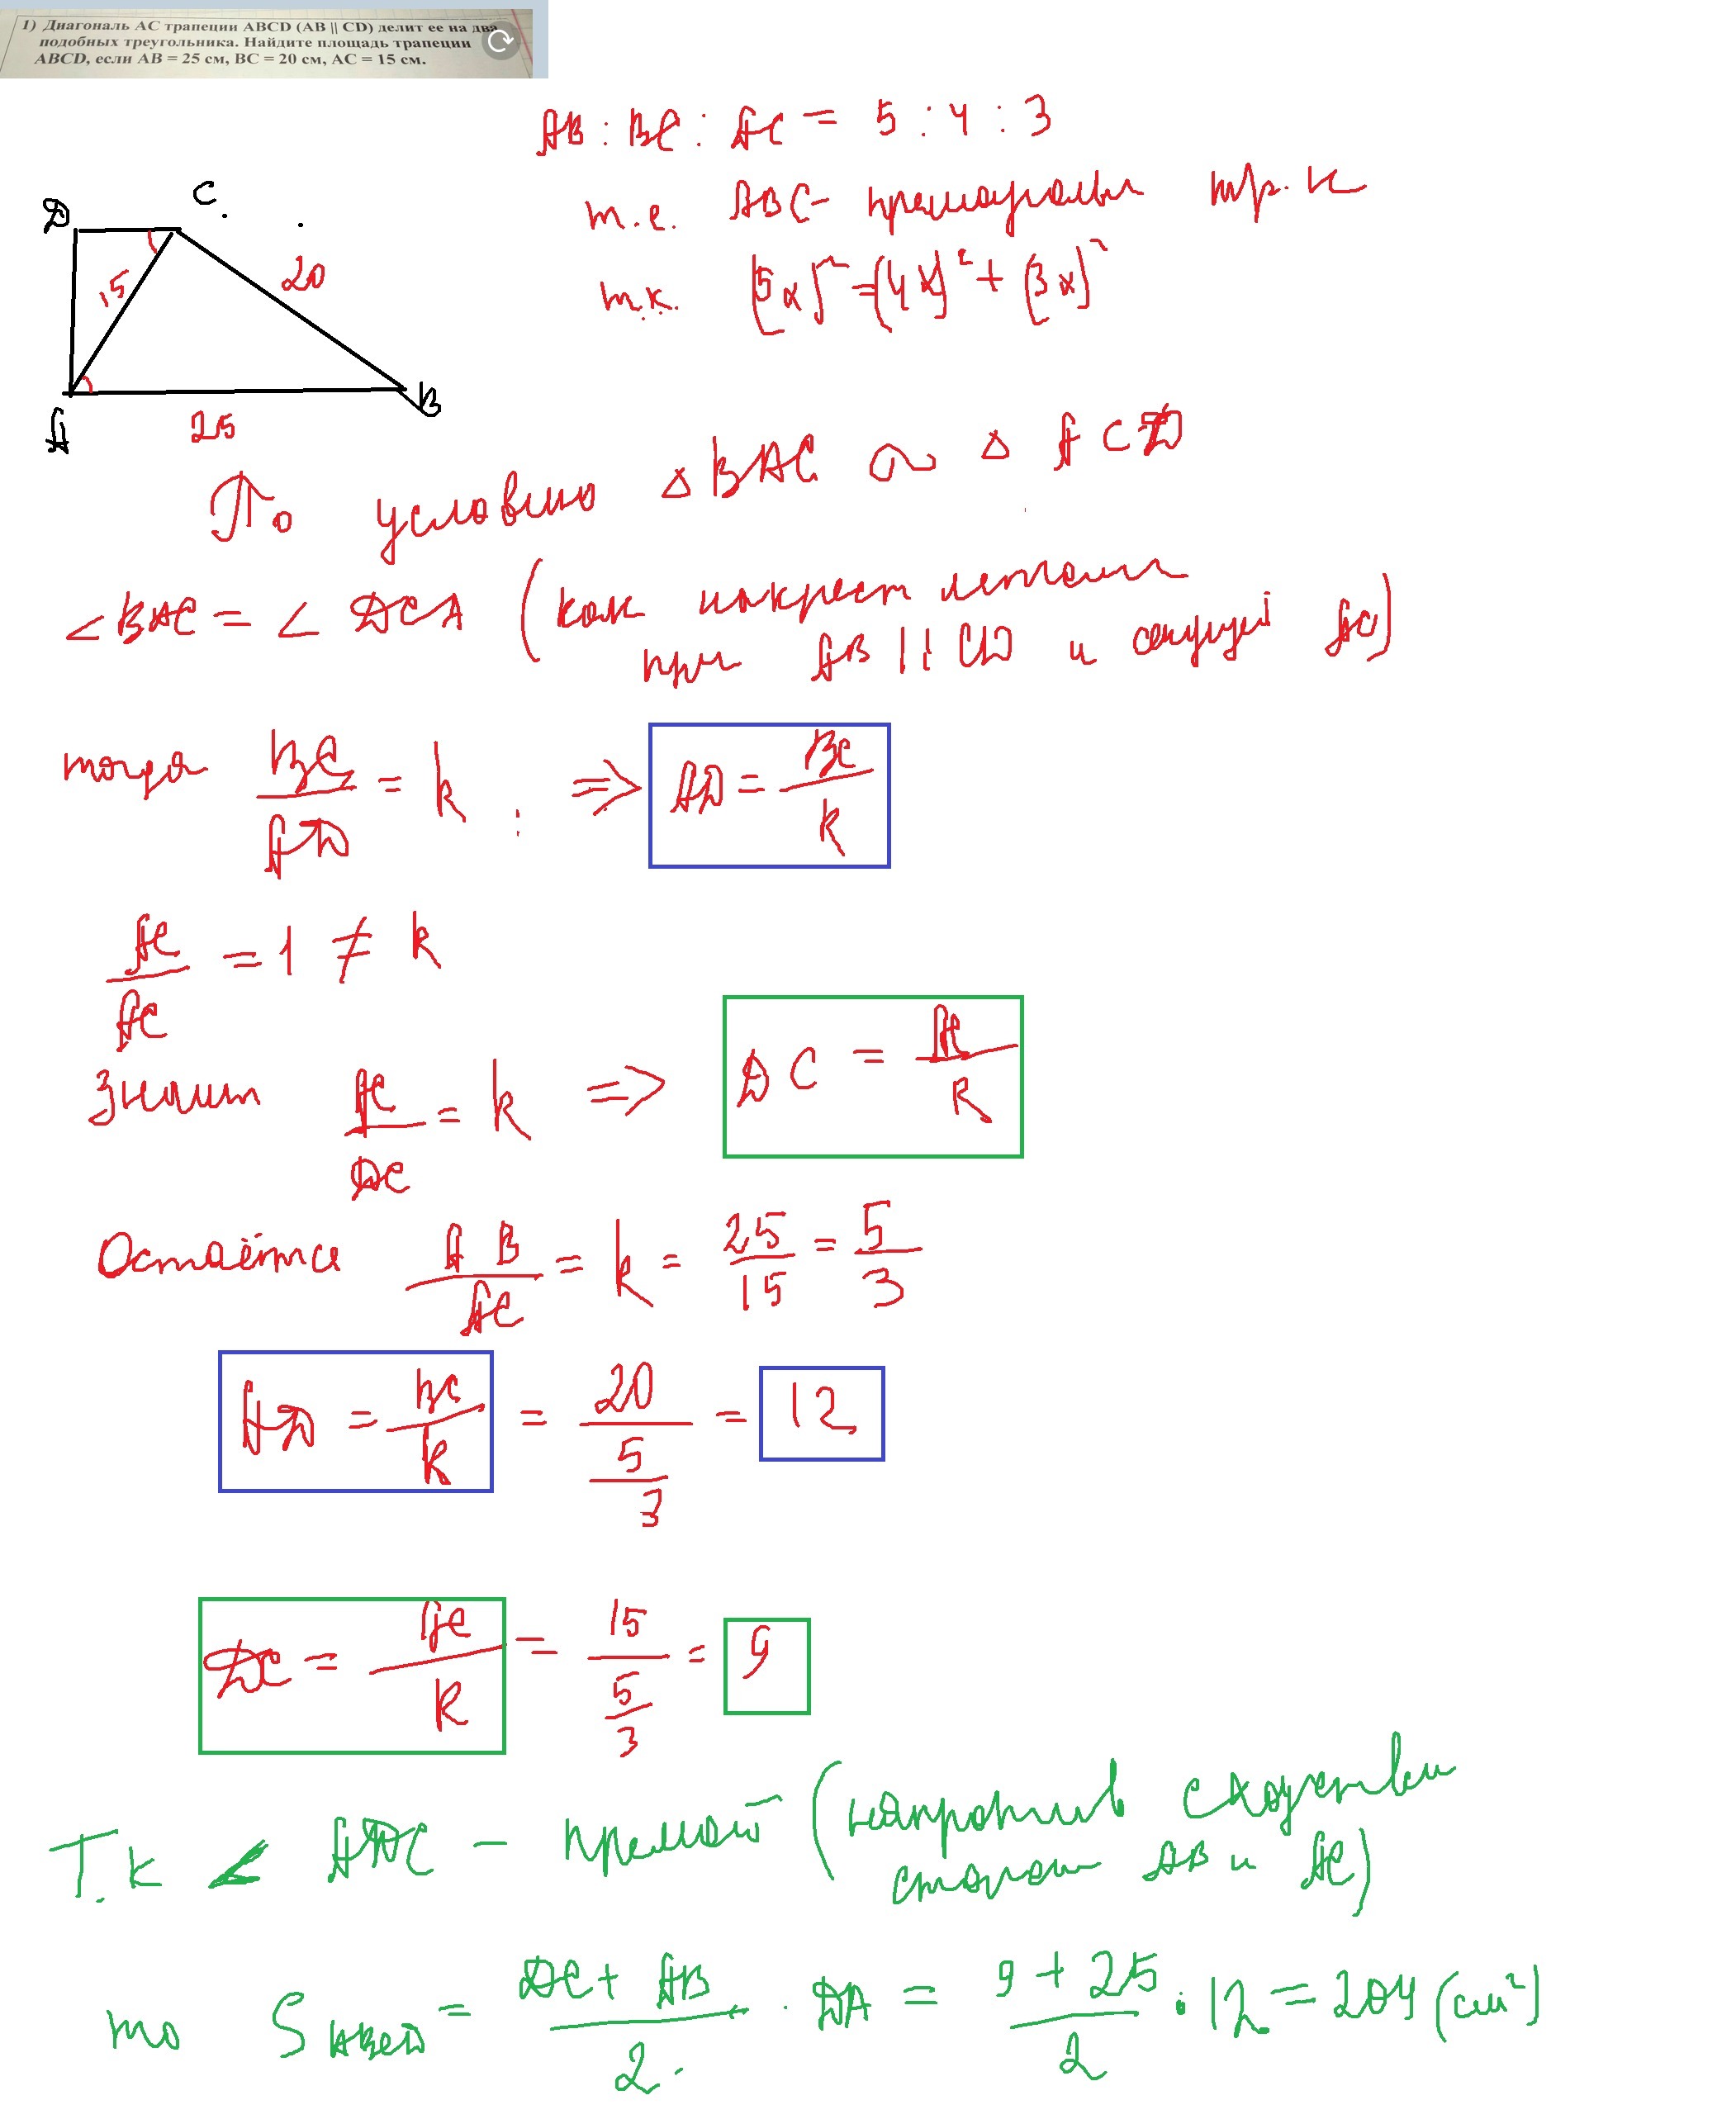 1) Диагональ AC трапеции ABCD (AB || CD) делит ее на два
подобных треугольника. Найдите площадь трапеции
ABCD, если AB = 25 см, BC = 20 см, AC = 15 см.
AB : BC : AC = 5 : 4 : 3
т.е. ABC - прямоугольн тр.к
т.к. (5x)² = (4x)² + (3x)²
D C
15 20
A 25 B
По условию △BAC ∾ △ ACD
∠BAC = ∠ DCA (как накрест лежащие
при AB || CD и секущей AC)
тогда BC/AD = k ⇒ AD = BC/k
AC/AC = 1 ≠ k
Значит AC/DC = k ⇒ DC = AC/k
Остаётся AB/AC = k = 25/15 = 5/3
AD = BC/k = 20/(5/3) = 12
DC = AC/k = 15/(5/3) = 9
Т.к ∠ ADC - прямой (напротив сходствен
сторон AB и AC)
то S ABCD = (DC + AB)/2 · DA = (9 + 25)/2 · 12 = 204 (см²)